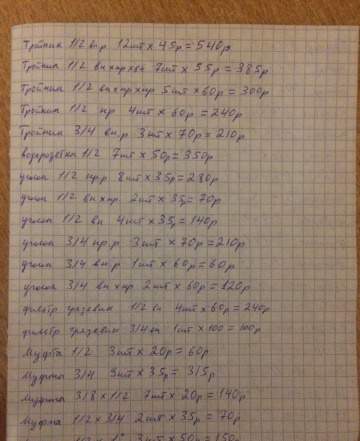 Тройник 1/2 вн.р. 12шт х 45р = 540р
Тройник 1/2 вн нар вн 7шт х 55р = 385р
Тройник 1/2 вн нар нар 5шт х 60р = 300р
Тройник 1/2 нр 4шт х 60р = 240р
Тройник 3/4 вн.р 3шт х 70р = 210р
водорозетка 1/2 7шт х 50р = 350р
уголок 1/2 нр.р 8шт х 35р = 280р
уголок 1/2 вн нар 2шт х 35р = 70р
уголок 1/2 вн 4шт х 35р = 140р
уголок 3/4 нр.р 3шт х 70р = 210р
уголок 3/4 вн.р 1шт х 60р = 60р
уголок 3/4 вн нар 2шт х 60р = 120р
фильтр грязевик 1/2 вн 4шт х 60р = 240р
фильтр грязевик 3/4 вн 1шт х 100 = 100р
Муфта 1/2 3шт х 20р = 60р
Муфта 3/4 9шт х 35р = 315р
Муфта 3/8 х 1/2 7шт х 20р = 140р
Муфта 1/2 х 3/4 2шт х 35р = 70р
3шт х 50р = 150р